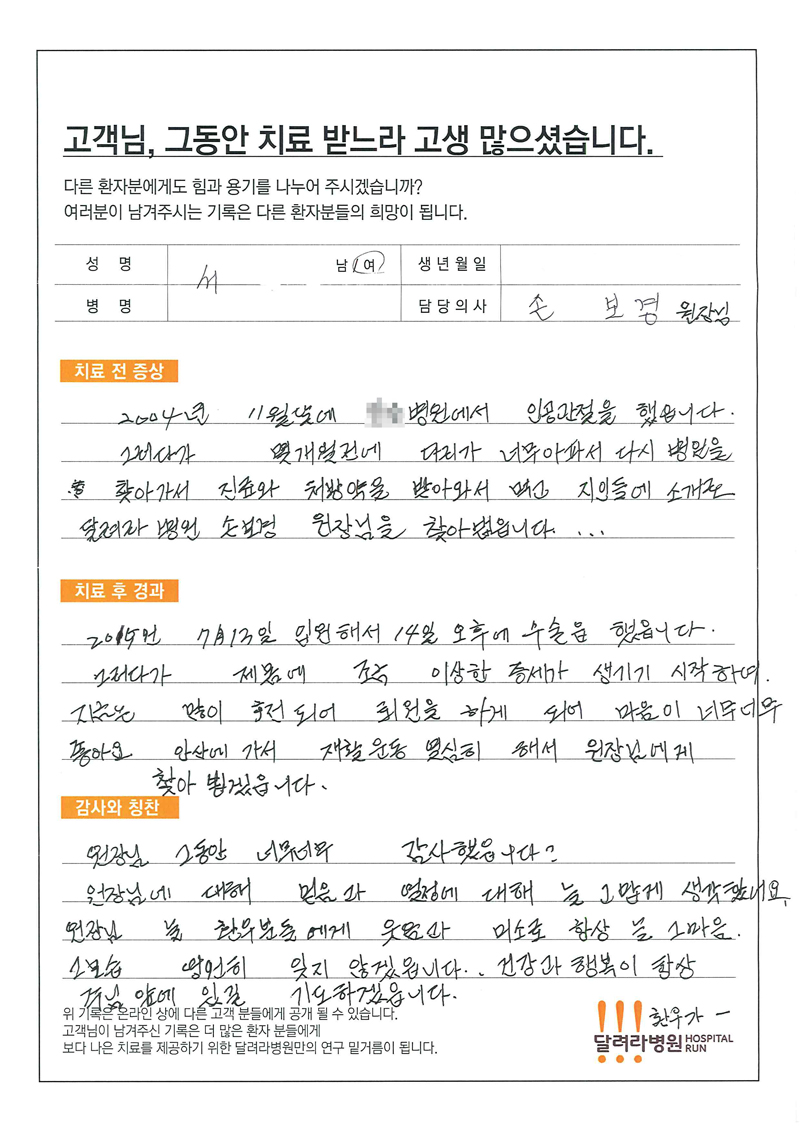 고객님, 그동안 치료 받느라 고생 많으셨습니다.
다른 환자분에게도 힘과 용기를 나누어 주시겠습니까?
여러분이 남겨주시는 기록은 다른 환자분들의 희망이 됩니다.
성 명 서 남 여 생년월일
병 명 담당의사 손 보경 원장님
치료 전 증상
2004년 11월달에 병원에서 인공관절을 했읍니다.
그러다가 몇개월전에 다리가 너무아파서 다시 병원을
찾아가서 진료와 처방약을 받아와서 먹고 지인들에 소개로
달려라 병원 손보경 원장님을 찾아뵙읍니다. ...
치료 후 경과
2015년 7月13일 입원해서 14일 오후에 수술을 했읍니다.
그러다가 제몸에 조금 이상한 증세가 생기기 시작하여.
지금은 많이 호전되어 퇴원을 하게 되어 마음이 너무너무
좋아요 안산에 가서 재활운동 열심히 해서 원장님에게
찾아 뵙겠읍니다.
감사와 칭찬
원장님 그동안 너무너무 감사했읍니다?
원장님에 대해 믿음과 열정에 대해 늘 그맙게 생각했네요,
원장님 늘 환우분들에게 웃음과 미소로 항상 늘 그마음.
그모습 영원히 잊지 않겠읍니다.. 건강과 행복이 항상
주님 앞에 있길 기도하겠읍니다.
위 기록은 온라인 상에 다른 고객 분들에게 공개 될 수 있습니다.
고객님이 남겨주신 기록은 더 많은 환자 분들에게
보다 나은 치료를 제공하기 위한 달려라병원만의 연구 밑거름이 됩니다.
환우가 ー
달려라병원 HOSPITAL RUN